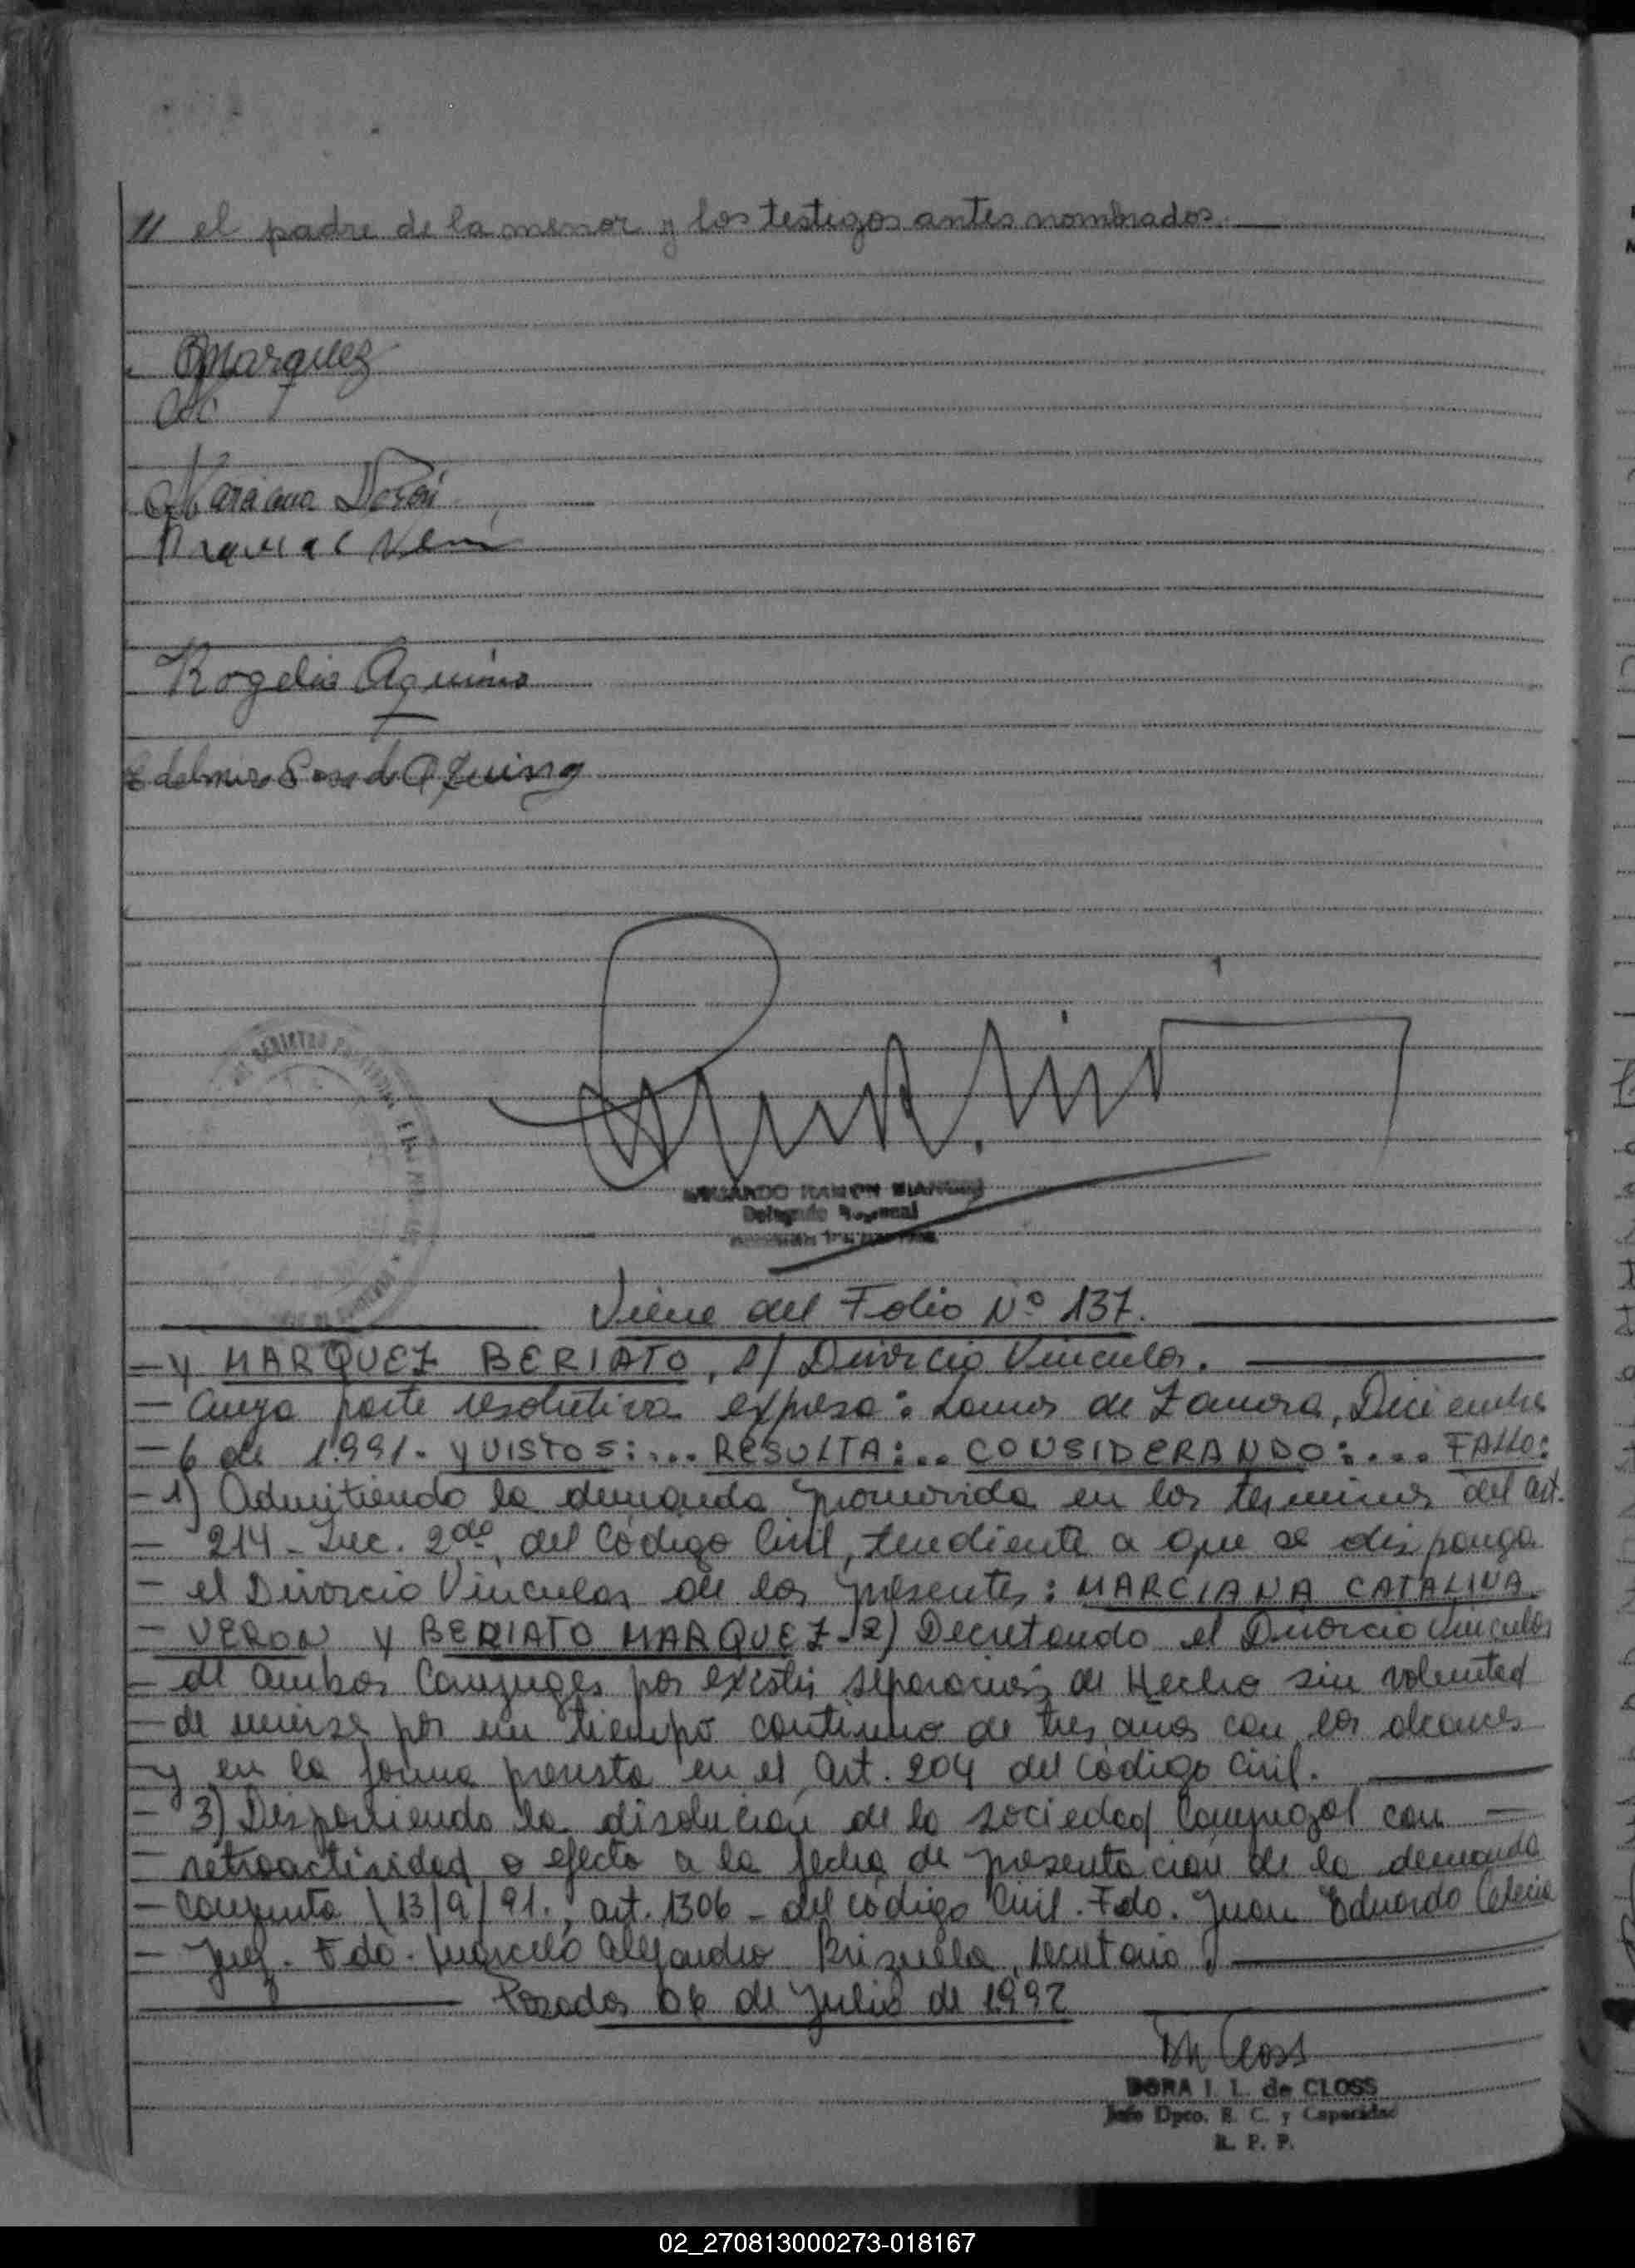 // el padre de la menor y los testigos antes nombrados.
BMarquez
Marciana Verón
Verón
Rogelio Aquino
de Aquino
EDUARDO RAMON
Delegado Regional
Viene del Folio Nº 137.
- y MARQUEZ BERIATO, s/ Divorcio Vincular.
- Cuya parte resolutiva expresa: Lomas de Zamora, Diciembre
- 6 de 1.991. y VISTOS:... RESULTA:... CONSIDERANDO:.... FALLO:
- 1) Admitiendo la demanda promovida en los terminos del art.
- 214 - Inc. 2do, del Código Civil, tendiente a que se disponga
- el Divorcio Vincular de los presentes: MARCIANA CATALINA
- VERON y BERIATO MARQUEZ - 2) Decretando el Divorcio Vincular
- de ambos Conyuges por existir separación de Hecho sin voluntad
- de unirse por un tiempo continuo de tres años con los alcances
- y en la forma prevista en el Art. 204 del Código Civil.
- 3) Disponiendo la disolución de la sociedad Conyugal con -
- retroactividad o efecto a la fecha de presentación de la demanda
- conjunta (13/9/91., art. 1306 - del código Civil. Fdo. Juan Eduardo
- Juez. Fdo. Marcelo Alejandro Brizuela, secretario.
Posadas 06 de Julio de 1992
DORA I. L. de CLOSS
Jefe Dpto. E. C. y Capacidad
R. P. P.
02_270813000273-018167